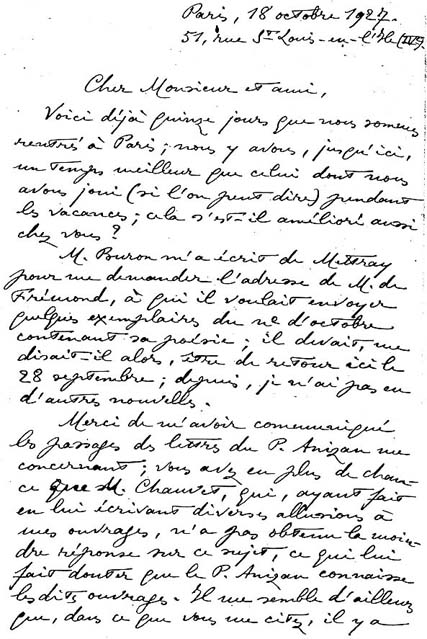 Paris, 18 octobre 1927.
51, rue St Louis-en-l'Ile (IVe).
Cher Monsieur et ami,
Voici déjà quinze jours que nous sommes
rentrés à Paris ; nous y avons, jusqu'ici,
un temps meilleur que celui dont nous
avons joui (si l'on peut dire) pendant
les vacances ; cela s'est-il amélioré aussi
chez vous ?
M. Buron m'a écrit de Mettray
pour me demander l'adresse de M. de
Frémond, à qui il voulait envoyer
quelques exemplaires du no d'octobre
contenant sa poésie ; il devait, me
disait-il alors, être de retour ici le
28 septembre ; depuis, je n'ai pas eu
d'autres nouvelles.
Merci de m'avoir communiqué
les passages des lettres du P. Anizan me
concernant ; vous avez eu plus de chan-
ce que M. Chauvet, qui, ayant fait
en lui écrivant diverses allusions à
mes ouvrages, n'a pas obtenu la moin-
dre réponse sur ce sujet, ce qui lui
fait douter que le P. Anizan connaisse
les dits ouvrages. Il me semble d'ailleurs
que, dans ce que vous me citez, il y a